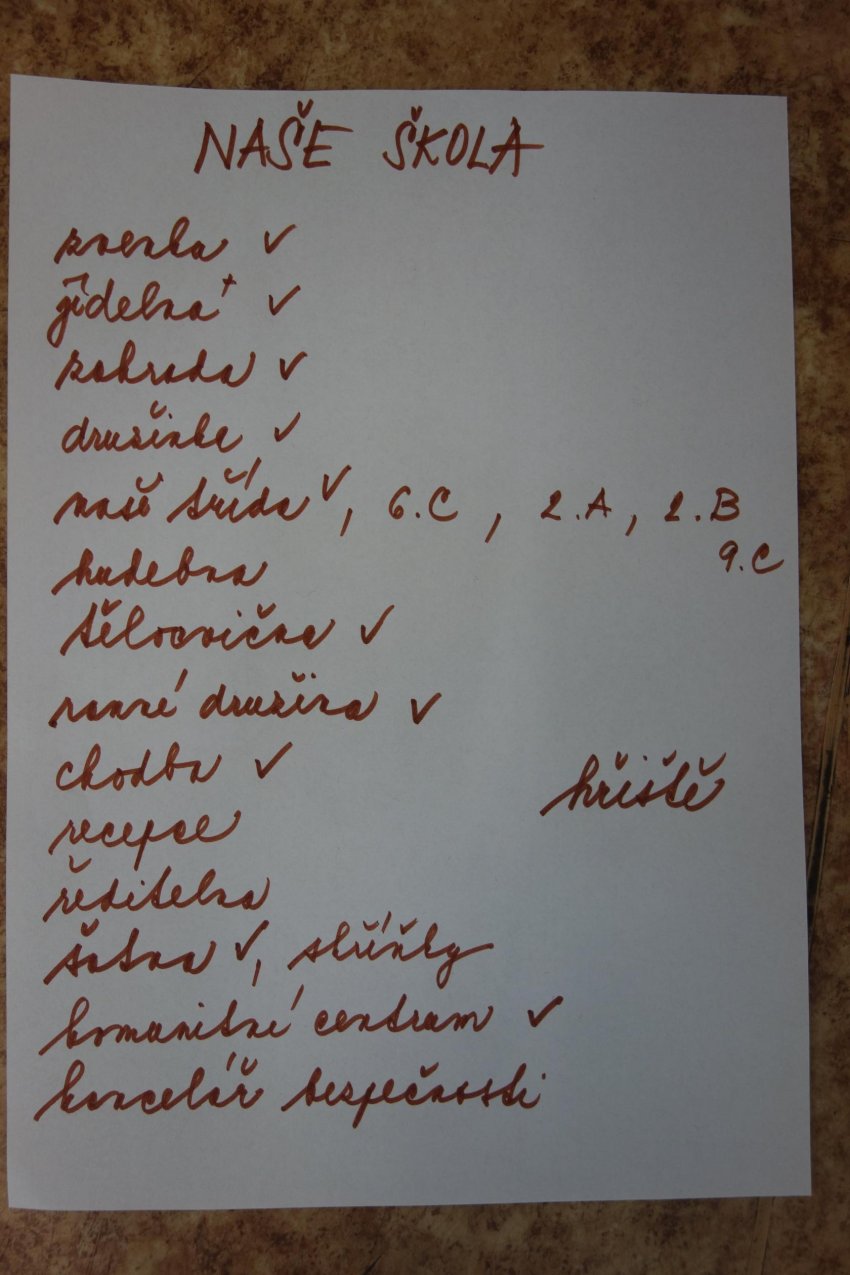 NAŠE ŠKOLA
zvenku ✓
jídelna + ✓
zahrada ✓
družinka ✓
naše třída ✓, 6.C, 2.A, 2.B
9.C
hudebna
tělocvična ✓
ranní družina ✓
chodba ✓
hřiště
recepce
ředitelna
šatna ✓, skříňky
komunitní centrum ✓
kancelář bezpečnosti